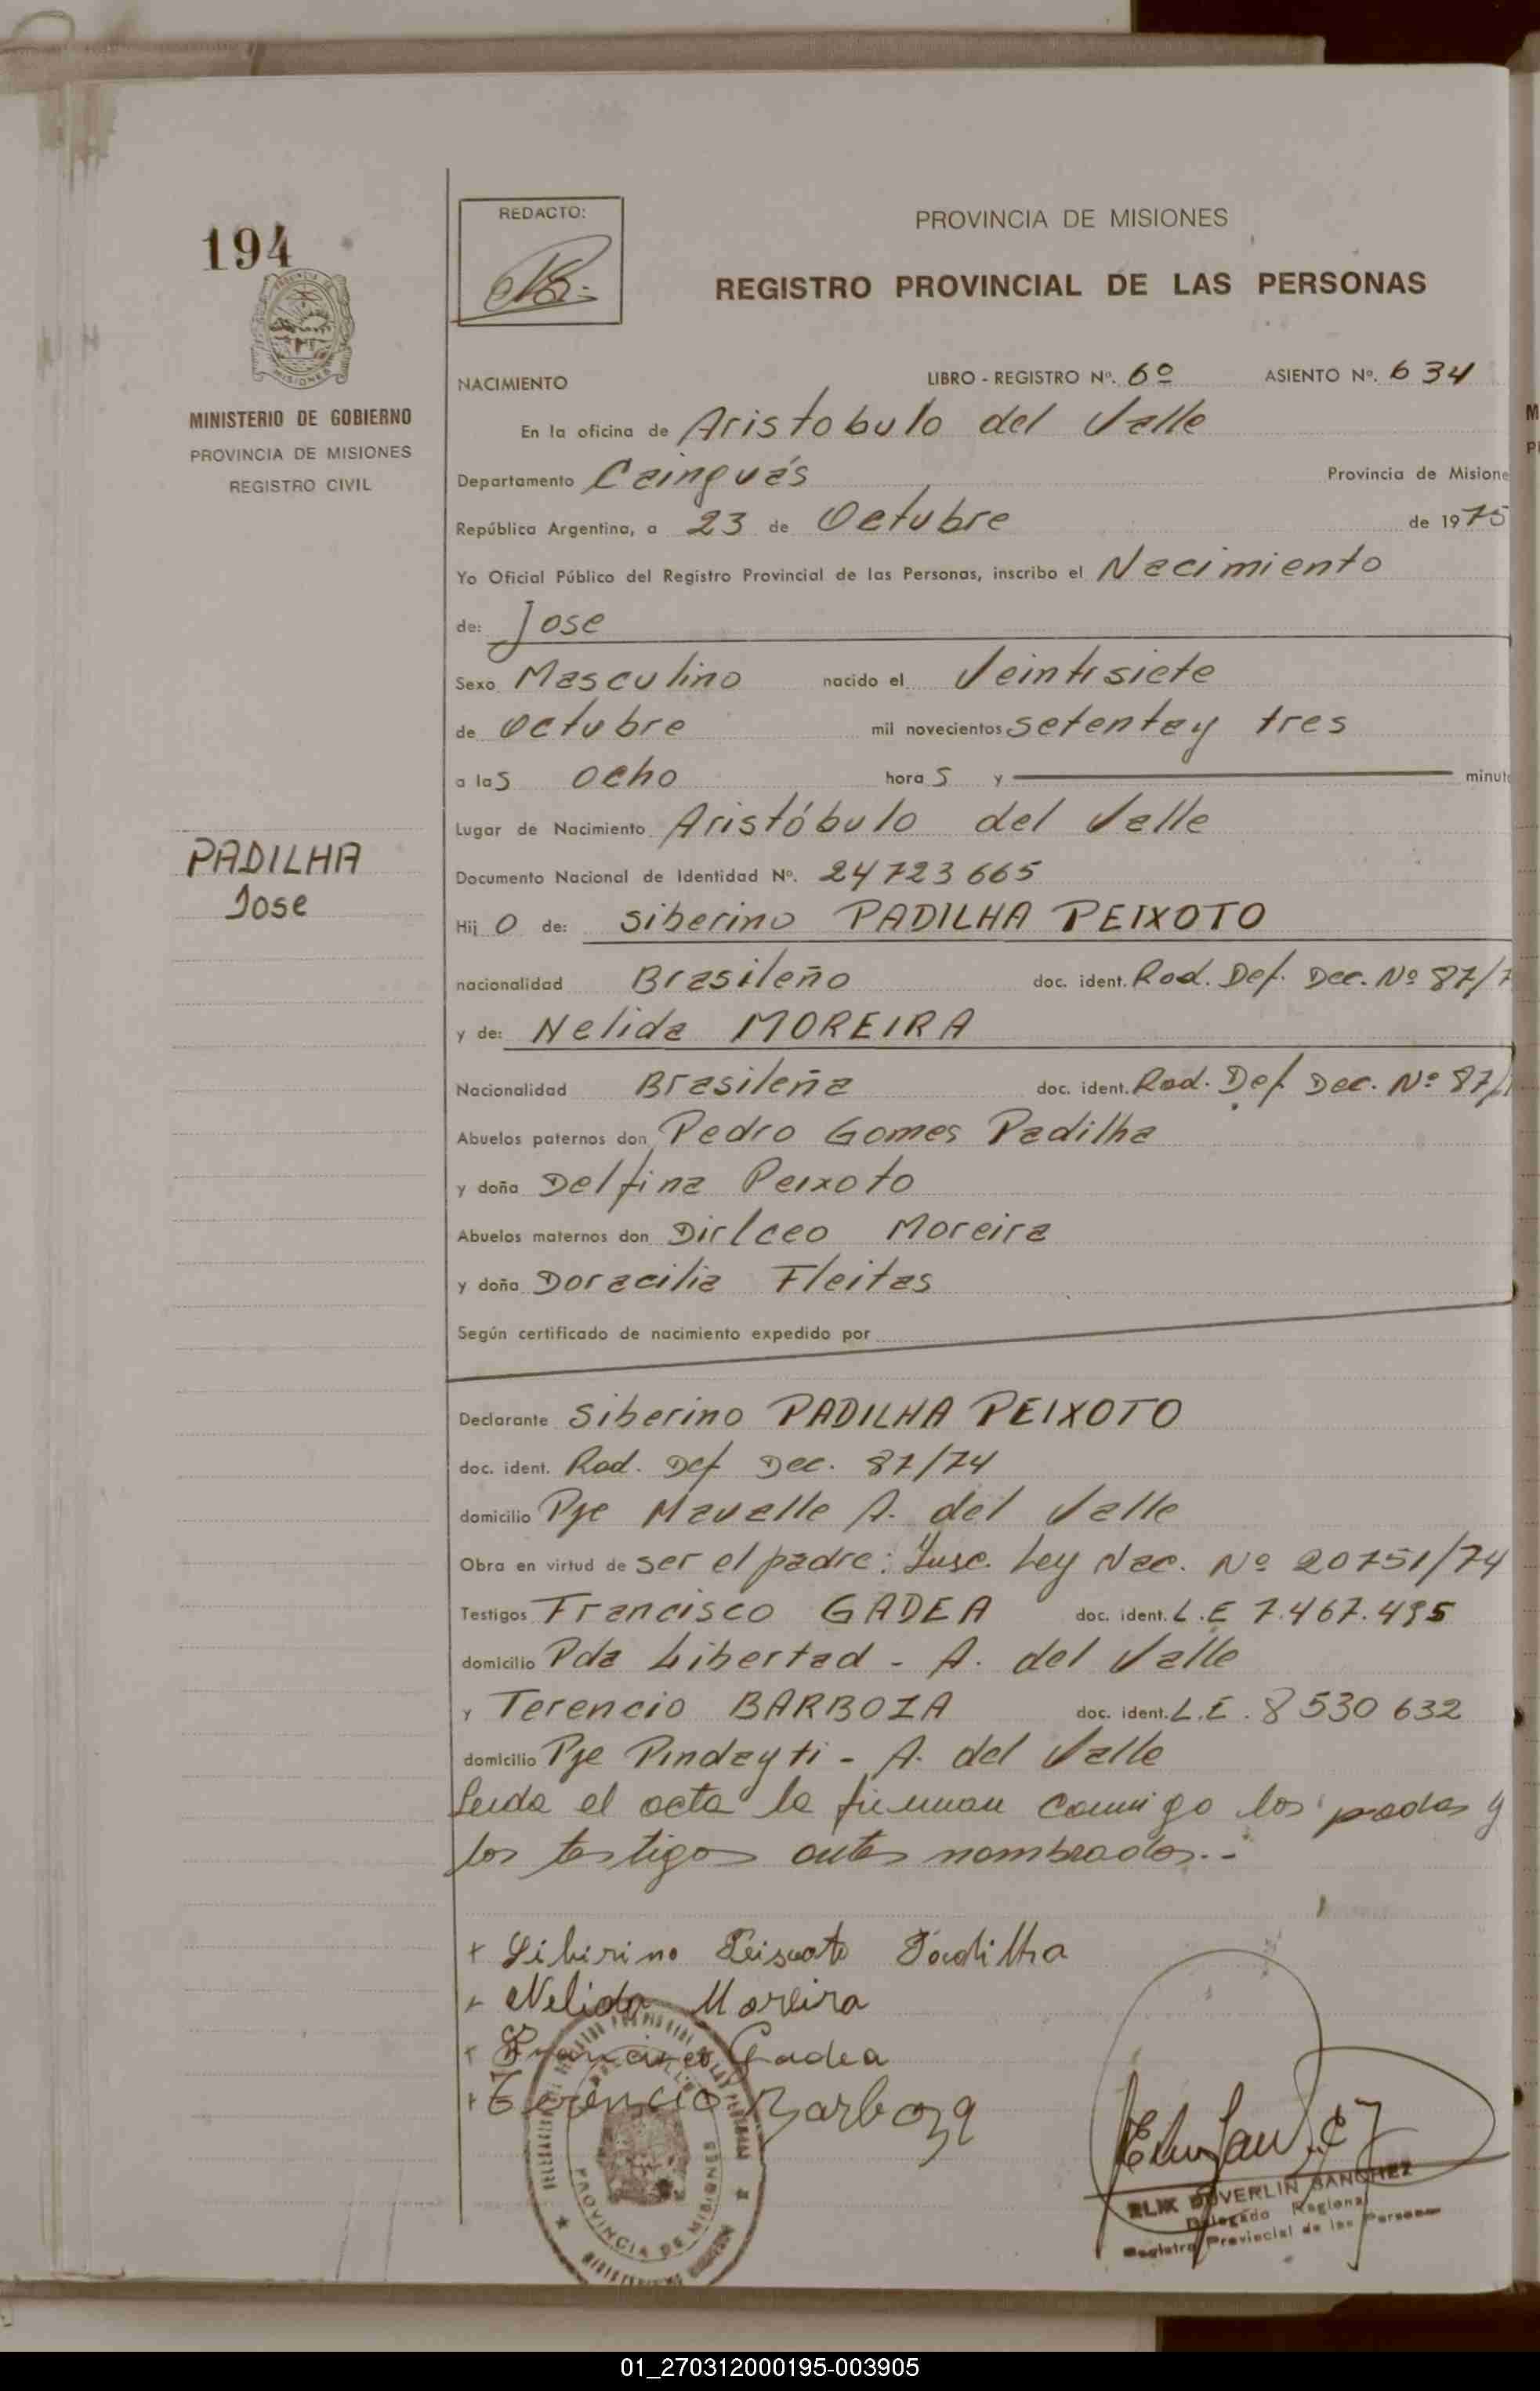 194
REDACTO:
PROVINCIA DE MISIONES
REGISTRO PROVINCIAL DE LAS PERSONAS
MINISTERIO DE GOBIERNO
PROVINCIA DE MISIONES
REGISTRO CIVIL
NACIMIENTO LIBRO - REGISTRO Nº. 6º ASIENTO Nº. 634
En la oficina de Aristobulo del Valle
Departamento Cainguás Provincia de Misione
República Argentina, a 23 de Octubre de 1975
Yo Oficial Público del Registro Provincial de las Personas, inscribo el Nacimiento
de: Jose
Sexo Masculino nacido el Veintisiete
de Octubre mil novecientos setenta y tres
a las ocho horas y minut
Lugar de Nacimiento Aristóbulo del Valle
PADILHA
Jose
Documento Nacional de Identidad Nº. 24723665
Hijo de: Siberino PADILHA PEIXOTO
nacionalidad Brasileño doc. ident. Rad. Def. Dec. Nº 87/7
y de: Nelida MOREIRA
Nacionalidad Brasileña doc. ident. Rad. Def. Dec. Nº 87/
Abuelos paternos don Pedro Gomes Padilha
y doña Delfina Peixoto
Abuelos maternos don Dirlceo Moreira
y doña Doracilia Fleitas
Según certificado de nacimiento expedido por
Declarante Siberino PADILHA PEIXOTO
doc. ident. Rad. Def Dec. 87/74
domicilio Pje Mavalle A. del Valle
Obra en virtud de ser el padre: Insc. Ley Nac. Nº 20751/74
Testigos Francisco GADEA doc. ident. L.E 7.467.495
domicilio Pda Libertad - A. del Valle
y Terencio BARBOZA doc. ident. L.E. 8530632
domicilio Pje Pindayti - A. del Valle
Leida el acta la firman conmigo los padres y
los testigos antes nombrados.-
+ Siberino Peisxoto Padilha
+ Nelida Moreira
+ Francisco Gadea
+ Terencio Barboza
PROVINCIA DE MISIONES
ELIX DUVERLIN SANCHEZ
Delegado Regional
Registro Provincial de las Personas
01_270312000195-003905